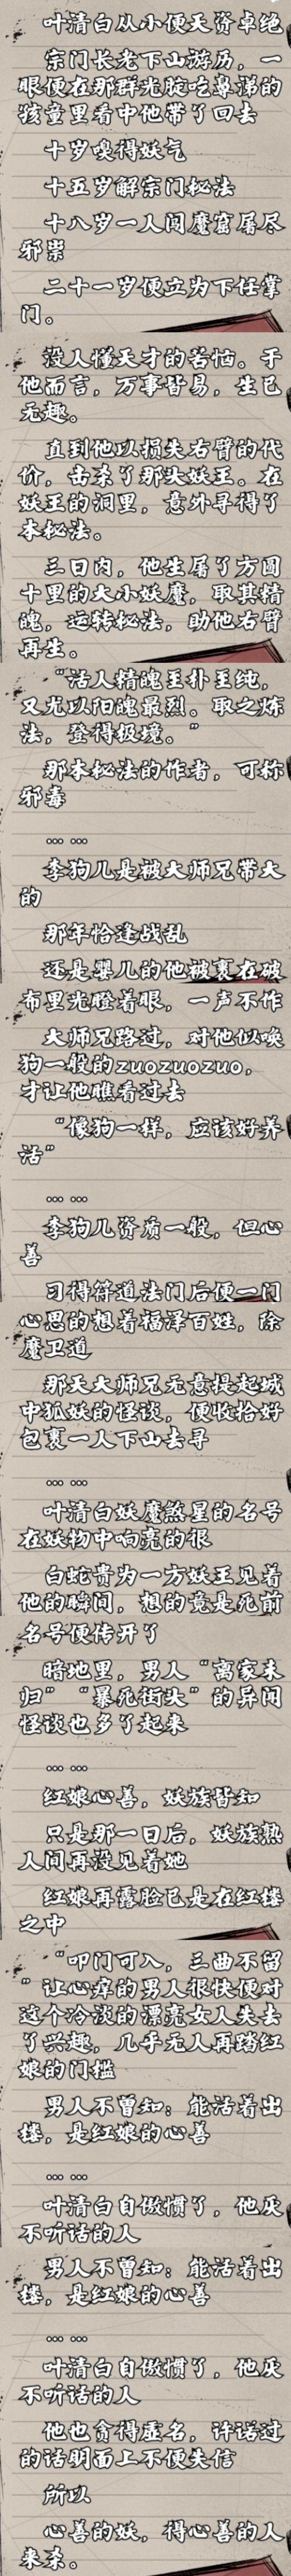 叶清白从小便天资卓绝
宗门长老下山游历，一
眼便在那群光腚吃鼻涕的
孩童里看中他带了回去
十岁嗅得妖气
十五岁解宗门秘法
十八岁一人闯魔窟屠尽
邪祟
二十一岁便立为下任掌
门。
没人懂天才的苦恼。于
他而言，万事皆易，生已
无趣。
直到他以损失右臂的代
价，击杀了那头妖王。在
妖王的洞里，意外寻得了
本秘法。
三日内，他生屠了方圆
十里的大小妖魔，取其精
魄，运转秘法，助他右臂
再生。
“活人精魄至朴至纯，
又尤以阳魄最烈。取之炼
法，登得极境。”
那本秘法的作者，可称
邪毒
……
李狗儿是被大师兄带大
的
那年恰逢战乱
还是婴儿的他被裹在破
布里光瞪着眼，一声不作
大师兄路过，对他似唤
狗一般的zuozuozuo，
才让他瞧看过去
“像狗一样，应该好养
活”
……
李狗儿资质一般，但心
善
习得符道法门后便一门
心思的想着福泽百姓，除
魔卫道
那天大师兄无意提起城
中狐妖的怪谈，便收拾好
包裹一人下山去寻
……
叶清白妖魔煞星的名号
在妖物中响亮的很
白蛇贵为一方妖王见着
他的瞬间，想的竟是死前
名号便传开了
暗地里，男人“离家未
归”“暴死街头”的异闻
怪谈也多了起来
……
红娘心善，妖族皆知
只是那一日后，妖族熟
人间再没见着她
红娘再露脸已是在红楼
之中
“叩门可入，三曲不留
”让心痒的男人很快便对
这个冷淡的漂亮女人失去
了兴趣，几乎无人再踏红
娘的门槛
男人不曾知：能活着出
楼，是红娘的心善
……
叶清白自傲惯了，他厌
不听话的人
男人不曾知：能活着出
楼，是红娘的心善
……
叶清白自傲惯了，他厌
不听话的人
他也贪得虚名，许诺过
的话明面上不便失信
所以
心善的妖，得心善的人
来杀。